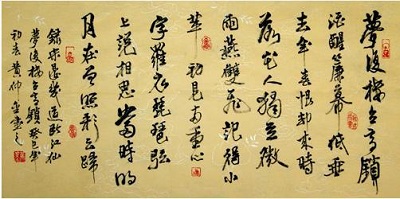 夢後樓台高鎖
酒醒簾幕低垂
去年春恨却來時
落花人獨立微
雨燕雙飛記得小
蘋初見兩重心
字羅衣琵琶弦
上說相思當時明
月在曾照彩云歸
錄宋晏幾道臨江仙
夢後樓台高鎖癸巳年
初春黄仲金書